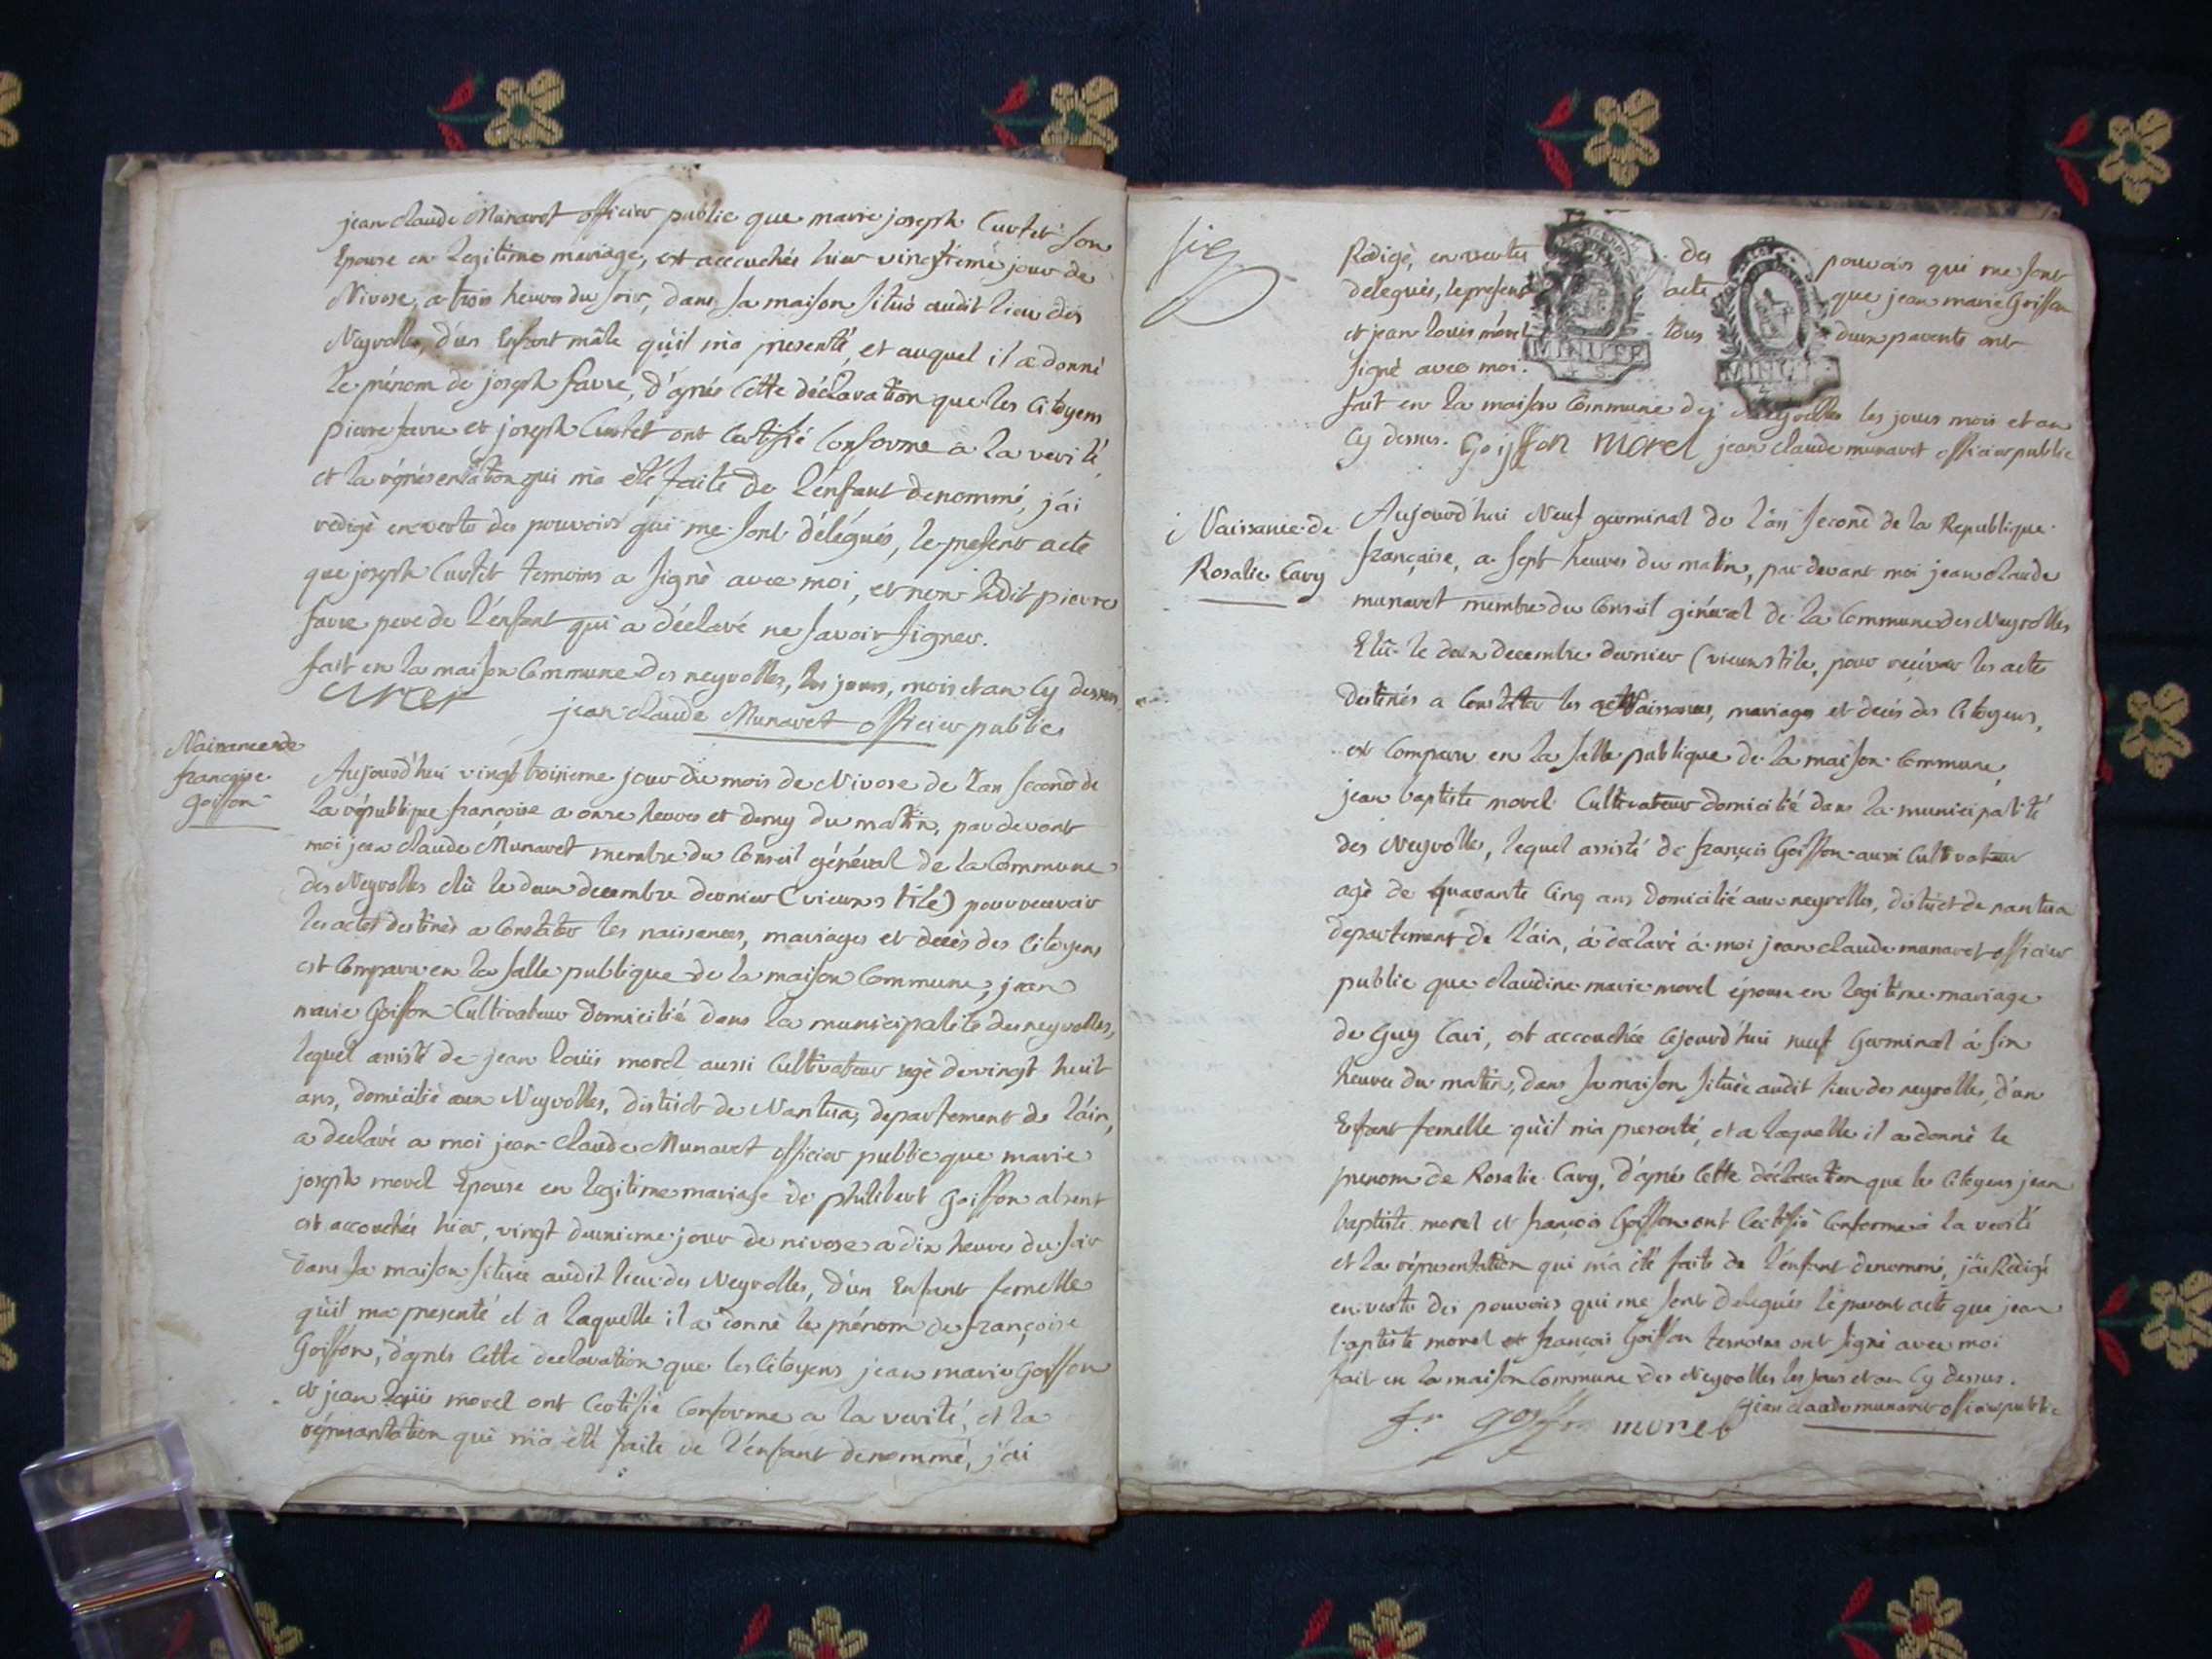 jean claude Munavet officier public que marie joseph Curtet son
Epouse en legitime mariage, est accouchée hier vingtieme jour de
Nivose, a trois heures du soir, dans sa maison située audit lieu des
Neyrolles, d'un Enfant mâle qu'il m'a presenté, et auquel il a donné
le prénom de joseph favre, d'après cette déclaration que les Citoyens
pierre favre et joseph Curtet ont Certifié Conforme a la verité
et la réprésentation qui m'a été faite de l'enfant denommé, j'ai
redigé en vertu des pouvoirs qui me sont délégués, le present acte
que joseph Curtet temoins a signé avec moi, et non ledit pierre
favre pere de l'enfant qui a déclaré ne savoir signer.
fait en la maison Commune des neyrolles, les jours, mois et an Cy dessus
curtet
jean claude Munavet officier public
Naissance de
françoise
Goiffon
Aujourd'hui vingt troisieme jour du mois de Nivose de l'an second de
la république françoise a onze heures et demy du matin, par devant
moi jean claude Munavet membre du Conseil général de la Commune
des Neyrolles élû le deux decembre dernier (vieux stile) pour recevoir
les actes destinés a Constater les naissances, mariages et decès des Citoyens
est Comparu en la salle publique de la maison Commune, jean
marie Goiffon Cultivateur domicilié dans la municipalité des neyrolles,
lequel assisté de jean loüis morel aussi Cultivateur agé de vingt huit
ans, domicilié aux Neyrolles, district de Nantua, departement de l'ain,
a declaré a moi jean claude Munavet officier public que marie
joseph morel Epouse en legitime mariage de philibert Goiffon absent
est accouchée hier, vingt deuxieme jour de nivose a dix heures du soir
dans sa maison située audit lieu des Neyrolles, d'un Enfant femelle
qu'il m'a presenté et a laquelle il a donné le prénom de françoise
Goiffon, d'après cette declaration que les Citoyens jean marie Goiffon
et jean loüis morel ont Certifié Conforme a la verité, et la
réprésentation qui m'a été faite de l'enfant denommé, j'ai
Redigé, en vertu des pouvoirs qui me sont
delegués, le present acte que jean marie Goiffon
et jean louis morel tous deux parents ont
signé avec moi.
MINUTE
fait en la maison Commune des Neyrolles les jours mois et an
Cy dessus. Goiffon morel jean claude munavet officier public
Naissance de
Rosalie Cavy
Aujourd'hui Neuf germinal de l'an second de la Republique
française, a sept heures du matin, par devant moi jean claude
munavet membre du Conseil général de la Commune des Neyrolles
Elû le deux decembre dernier (vieux stile, pour recevoir les actes
destinés a Constater les Naissances, mariages et decés des Citoyens,
est Comparu en la salle publique de la maison Commune,
jean baptiste morel Cultivateur domicilié dans la municipalité
des Neyrolles, lequel assisté de françois Goiffon aussi Cultivateur
agé de quarante Cinq ans domicilié aux neyrolles, district de nantua
departement de l'ain, à déclaré à moi jean claude munavet officier
public que claudine marie morel épouse en legitime mariage
de Guy Cavi, est accouchée cejourd'hui neuf Germinal à six
heures du matin, dans sa maison située audit lieu des neyrolles, d'un
Enfant femelle qu'il m'a presenté, et a laquelle il a donné le
prenom de Rosalie Cavy, d'aprés Cette déclaration que les Citoyens jean
baptiste morel et françois Goiffon ont Certifié Conforme à la verité
et la réprésentation qui m'a été faite de l'enfant denommé, j'ai Rédigé
en vertu des pouvoirs qui me sont delegués le present acte que jean
baptiste morel et françois Goiffon temoins ont signé avec moi
fait en la maison Commune des Neyrolles les jours et an Cy dessus.
fr goiffon morel jean claude munavet officier public